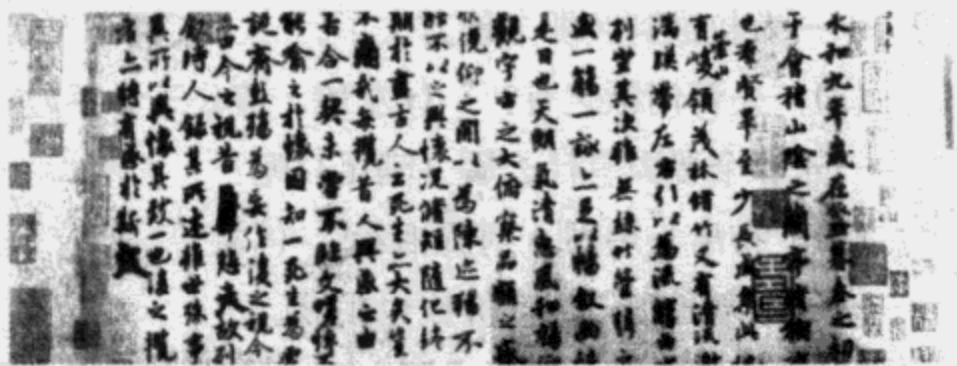 永和九年歲在癸丑暮春之初
于會稽山陰之蘭亭脩禊
也羣賢畢至少長咸集此
有崇山峻領茂林脩竹又有清流激
湍暎帶左右引以為流觴曲
列坐其次雖無絲竹管弦之
盛一觴一詠亦足以暢敘幽情
是日也天朗氣清惠風和暢
觀宇宙之大俯察品類之盛
俛仰之閒以為陳迹猶不
能不以之興懷況脩短隨化終
期於盡古人云死生亦大矣豈
不痛哉每攬昔人興感之由
若合一契未嘗不臨文嗟悼不
能喻之於懷固知一死生為虛
誕齊彭殤為妄作後之視今
亦由今之視昔悲夫故列
敘時人錄其所述雖世殊事
異所以興懷其致一也後之攬
者亦將有感於斯文